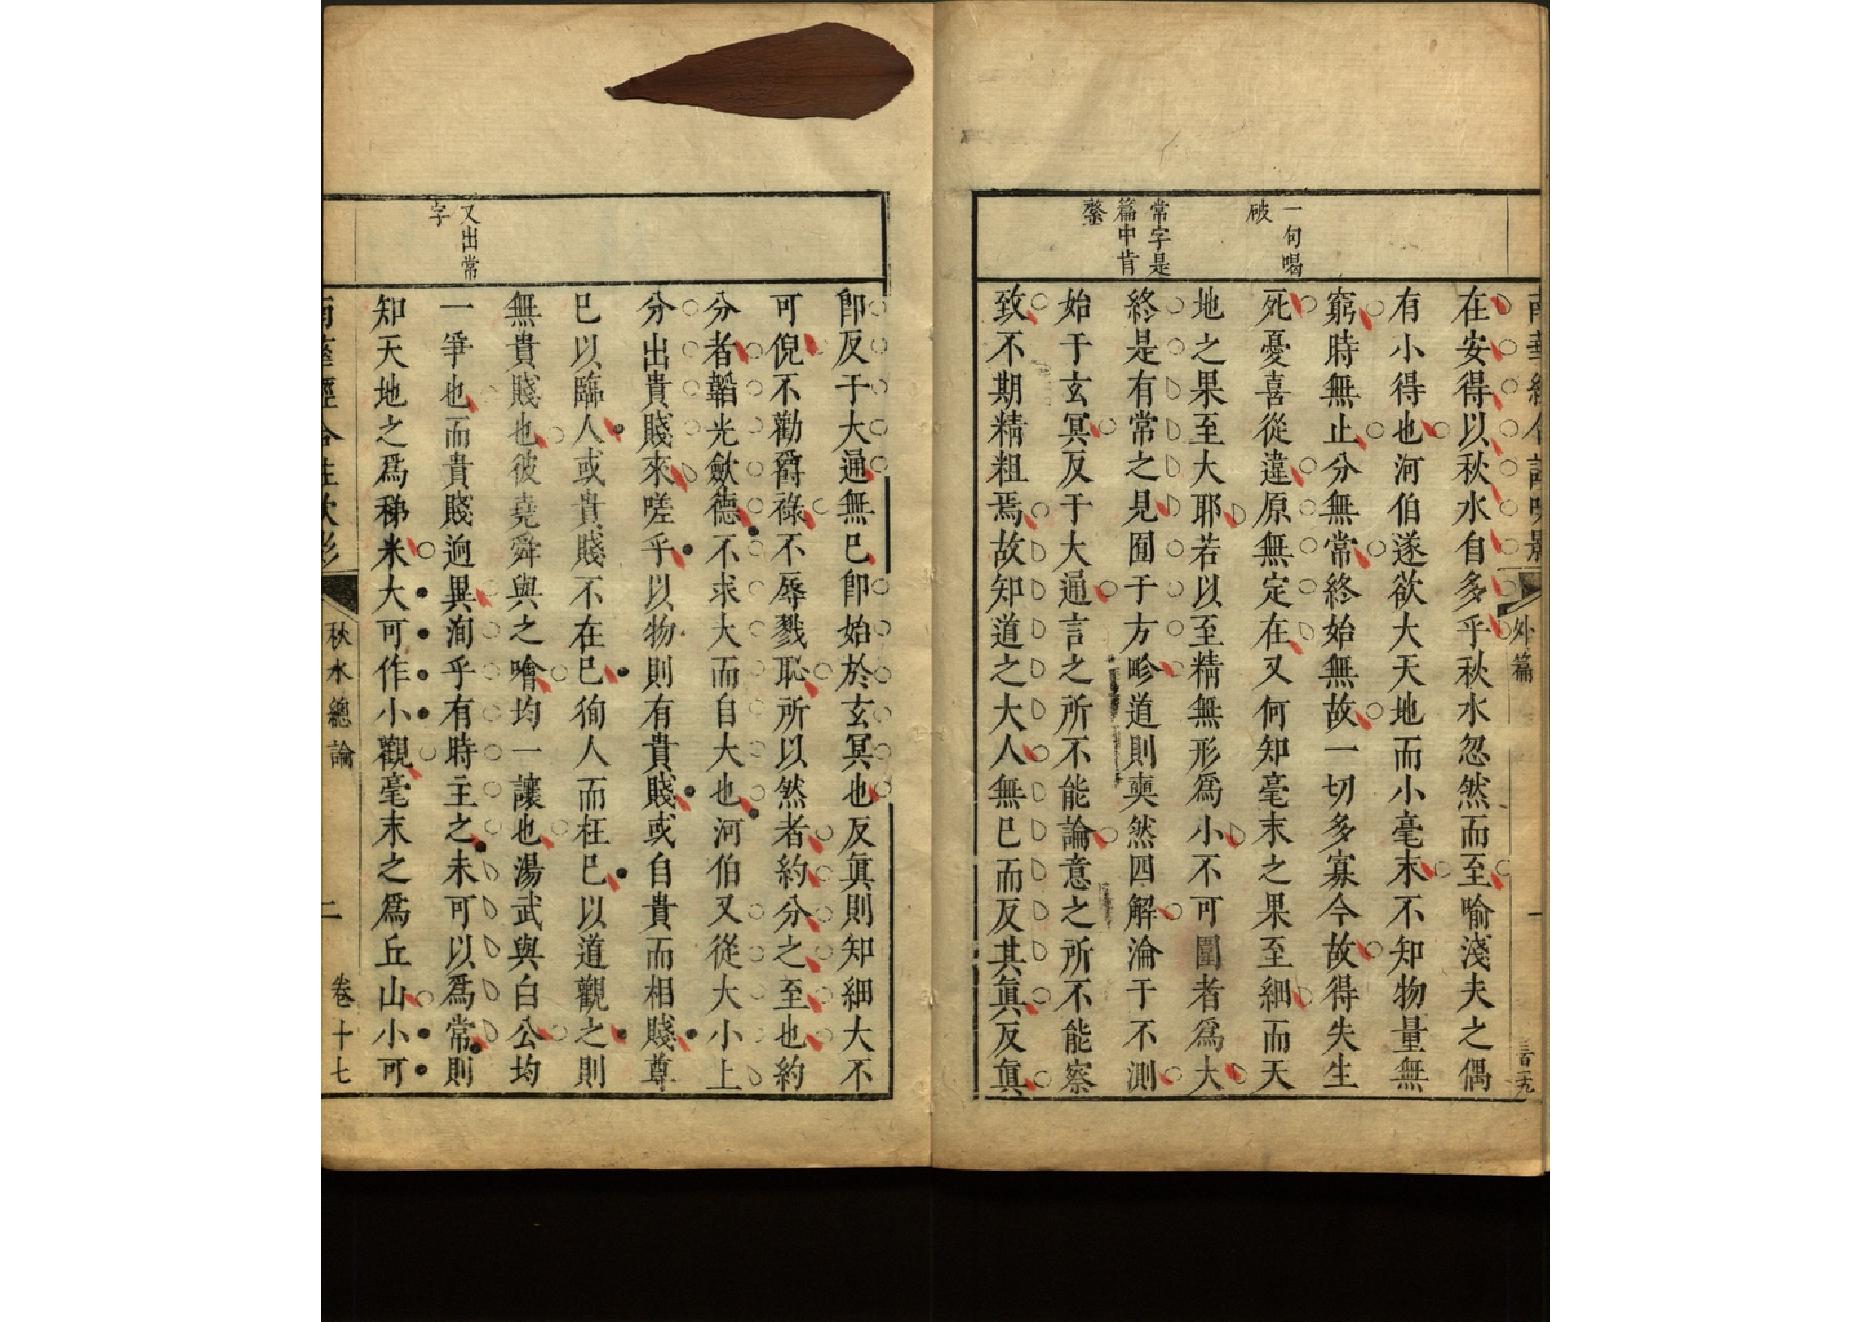 南華經合註吹影
外篇
一
一句喝
破
常字是
篇中肯
綮
在安得以秋水自多乎秋水忽然而至喻淺夫之偶
有小得也河伯遂欲大天地而小毫末不知物量無
窮時無止分無常終始無故一切多寡今故得失生
死憂喜從違原無定在又何知毫末之果至細而天
地之果至大耶若以至精無形爲小不可圍者爲大
終是有常之見囿于方畛道則奭然四解淪于不測
始于玄冥反于大通言之所不能論意之所不能察
致不期精粗焉故知道之大人無已而反其眞反眞
又出常
字
卽反于大通無已卽始於玄冥也反眞則知細大不
可倪不勸爵祿不辱戮恥所以然者約分之至也約
分者韜光歛德不求大而自大也河伯又從大小上
分出貴賤來嗟乎以物則有貴賤或自貴而相賤尊
已以臨人或貴賤不在已徇人而枉已以道觀之則
無貴賤也彼堯舜與之噲均一讓也湯武與白公均
一爭也而貴賤逈異洵乎有時主之未可以爲常則
知天地之爲稊米大可作小觀毫末之爲丘山小可
南華經合註吹影
秋水總論
二
卷十七